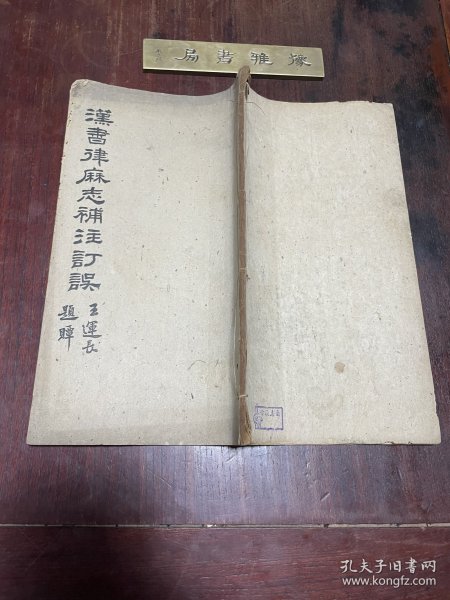 豫雅書局
漢書律厤志補注訂誤
王運長
題贉
孔夫子旧书网
www.kongfz.com